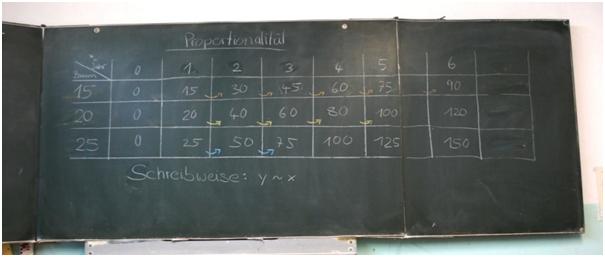 Proportionalität
0 1 2 3 4 5 6
15 0 15 30 45 60 75 90
20 0 20 40 60 80 100 120
25 0 25 50 75 100 125 150
Schreibweise: y ~ x